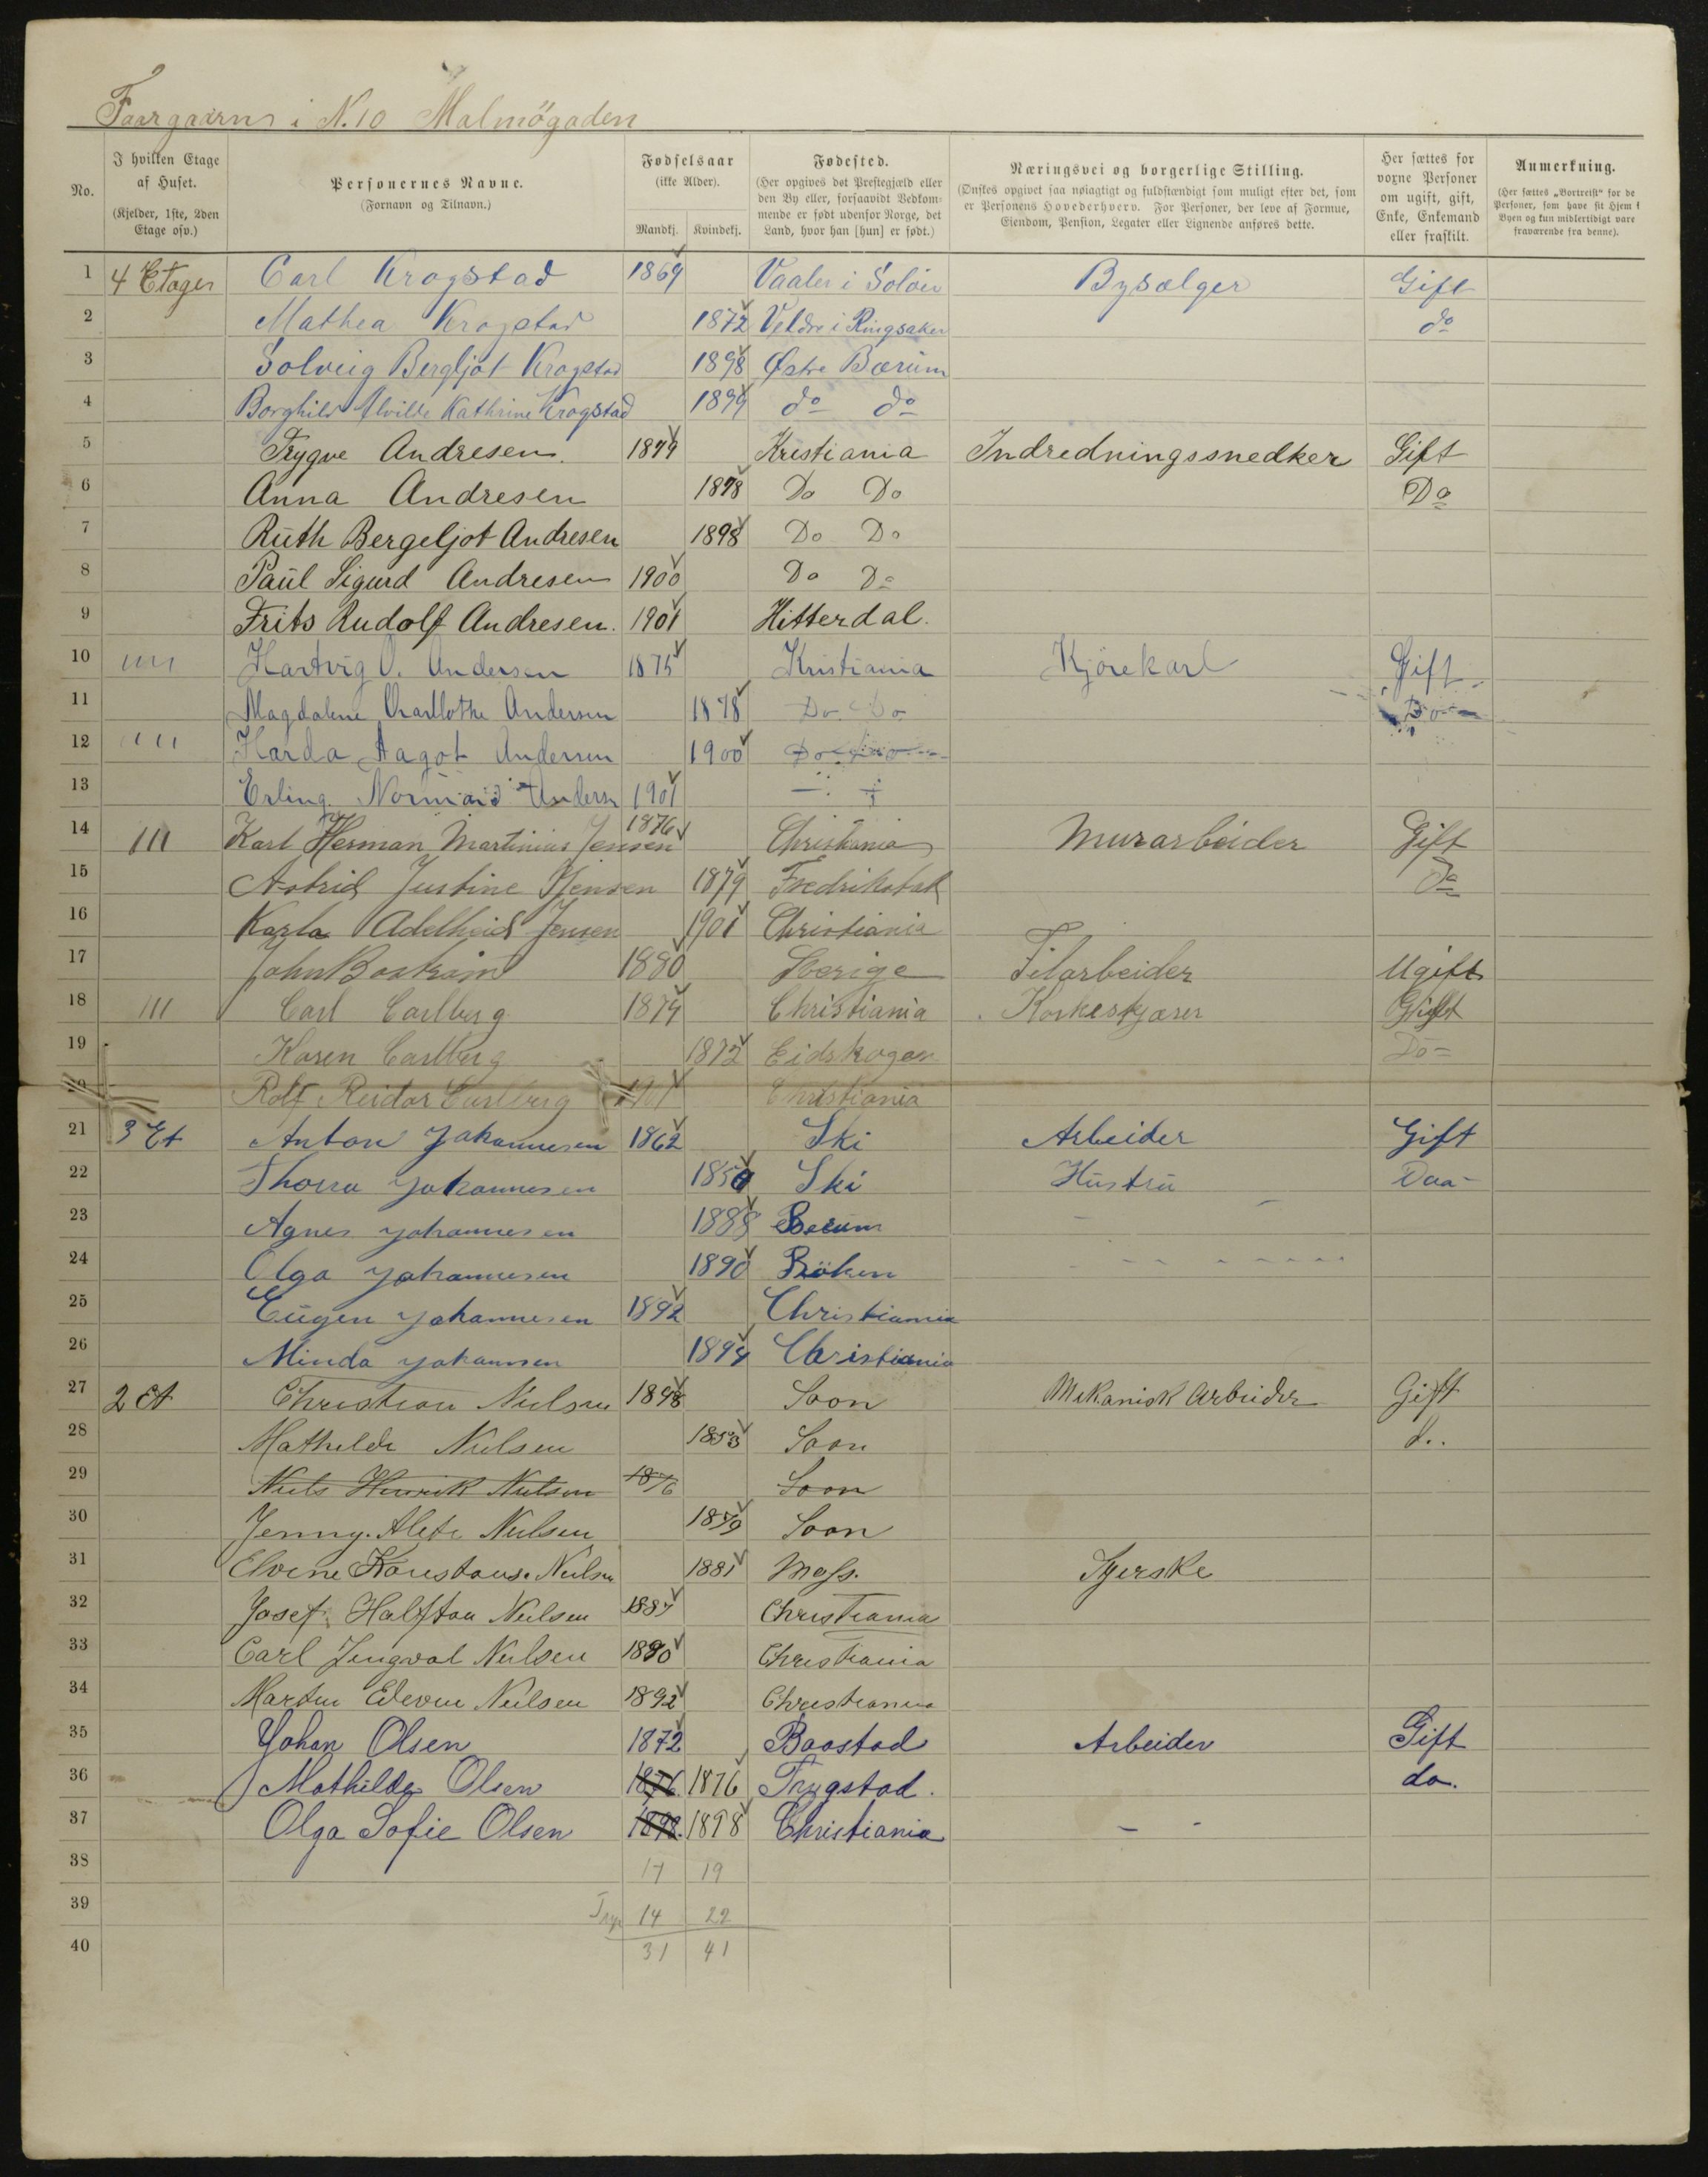 Faargaarns i N. 10 Malmögaden
No. I hvilken Etage af Huset. (Kjelder, 1ste, 2den Etage osv.) Personernes Navne. (Fornavn og Tilnavn.) Fødselsaar (ikke Alder). Mandkj. Kvindekj. Fødested. (Her opgives det Prestegjæld eller den By eller, forsaavidt Vedkommende er født udenfor Norge, det Land, hvor han [hun] er født.) Næringsvei og borgerlige Stilling. (Ønskes opgivet saa nøiagtigt og fuldstændigt som muligt efter det, som er Personens Hovederhverv. For Personer, der leve af Formue, Eiendom, Pension, Legater eller Lignende anføres dette. Her sættes for voxne Personer om ugift, gift, Enke, Enkemand eller fraskilt. Anmerkning. (Her sættes „Bortreist" for de Personer, som have sit Hjem i Byen og kun midlertidigt vare fraværende fra denne).
1 4 Etager Carl Krogstad 1869 Vaaler i Soløer Bysælger Gift
2 Mathea Krogstad 1872 Veldre i Ringsaker do
3 Solveig Bergljot Krogstad 1898 Østre Bærum
4 Borghild Alvilde Kathrine Krogstad 1899 do do
5 Trygve Andresen. 1879 Kristiania Indredningssnedker Gift
6 Anna Andresen 1878 Do Do Do
7 Ruth Bergeljot Andresen 1898 Do Do
8 Paul Sigurd Andresen 1900 Do Do
9 Frits Rudolf Andresen. 1901 Hitterdal.
10 Hartvig O. Andersen 1875 Kristiania Kjörekarl Gift
11 Magdalene Charllothe Andersen 1878 Do Do Do
12 Harda Aagot Andersen 1900 Do
13 Erling Andersn 1901
14 Karl Herman Martinius Jensen 1876 Christiania Murarbeider Gift
15 Astrid Justine Jensen 1879 Fredrikstad Do
16 Karla Adelheid Jensen 1901 Christiania
17 John Bostrøm 1880 Sverige Filarbeider Ugift
18 Carl Carlberg 1874 Christiania Korkeskjærer Gift
19 Karen Carlberg 1872 Eidskogen Do
20 Rolf Reidar Carlberg 1901 Christiania
21 3 Et Anton Johannesen 1862 Ski Arbeider Gift
22 Thorra Johannesen Ski Hustru Daa
23 Agnes Johannesen 1888 Berum
24 Olga Johannesen 1890 Röken
25 Eugen Johannesen 1892 Christiania
26 Minda Johannsen 1894 Christiania
27 2 Et Christian Nielsen Soon Mekanisk Arbeider Gift
28 Mathilde Nielsen 1853 Soon d..
29 Niels Henrik Nielsen 1876 Soon
30 Jenny. Alete Nielsen 1879 Soon
31 Elvine Nielsen 1881 Moss. Syerske
32 Josef Halfdan Nielsen 1887 Christiania
33 Carl Jingval Nielsen 1890 Christiania
34 Martin Edevin Nielsen 1892 Christiania
35 Johan Olsen 1872 Baastad Arbeider Gift
36 Mathilde Olsen 1876 1876 Trygstad. do.
37 Olga Sofie Olsen 1898. 1898 Christiania
38 17 19
39 14 22
40 31 41